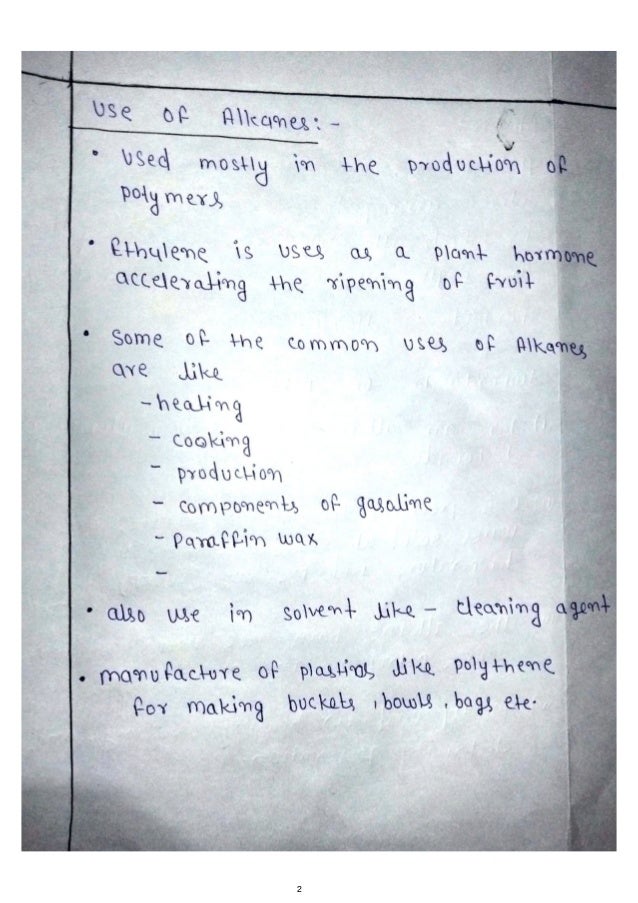 Use of Alkanes:-
• Used mostly in the production of
polymers
• Ethylene is uses as a plant hormone
accelerating the ripening of fruit
• Some of the common uses of Alkanes
are like
- heating
- cooking
- production
- components of gasaline
- Paraffin wax
-
• also use in solvent like - cleaning agent
• manufacture of plastics like polythene
for making buckets, bowls, bags etc.
2